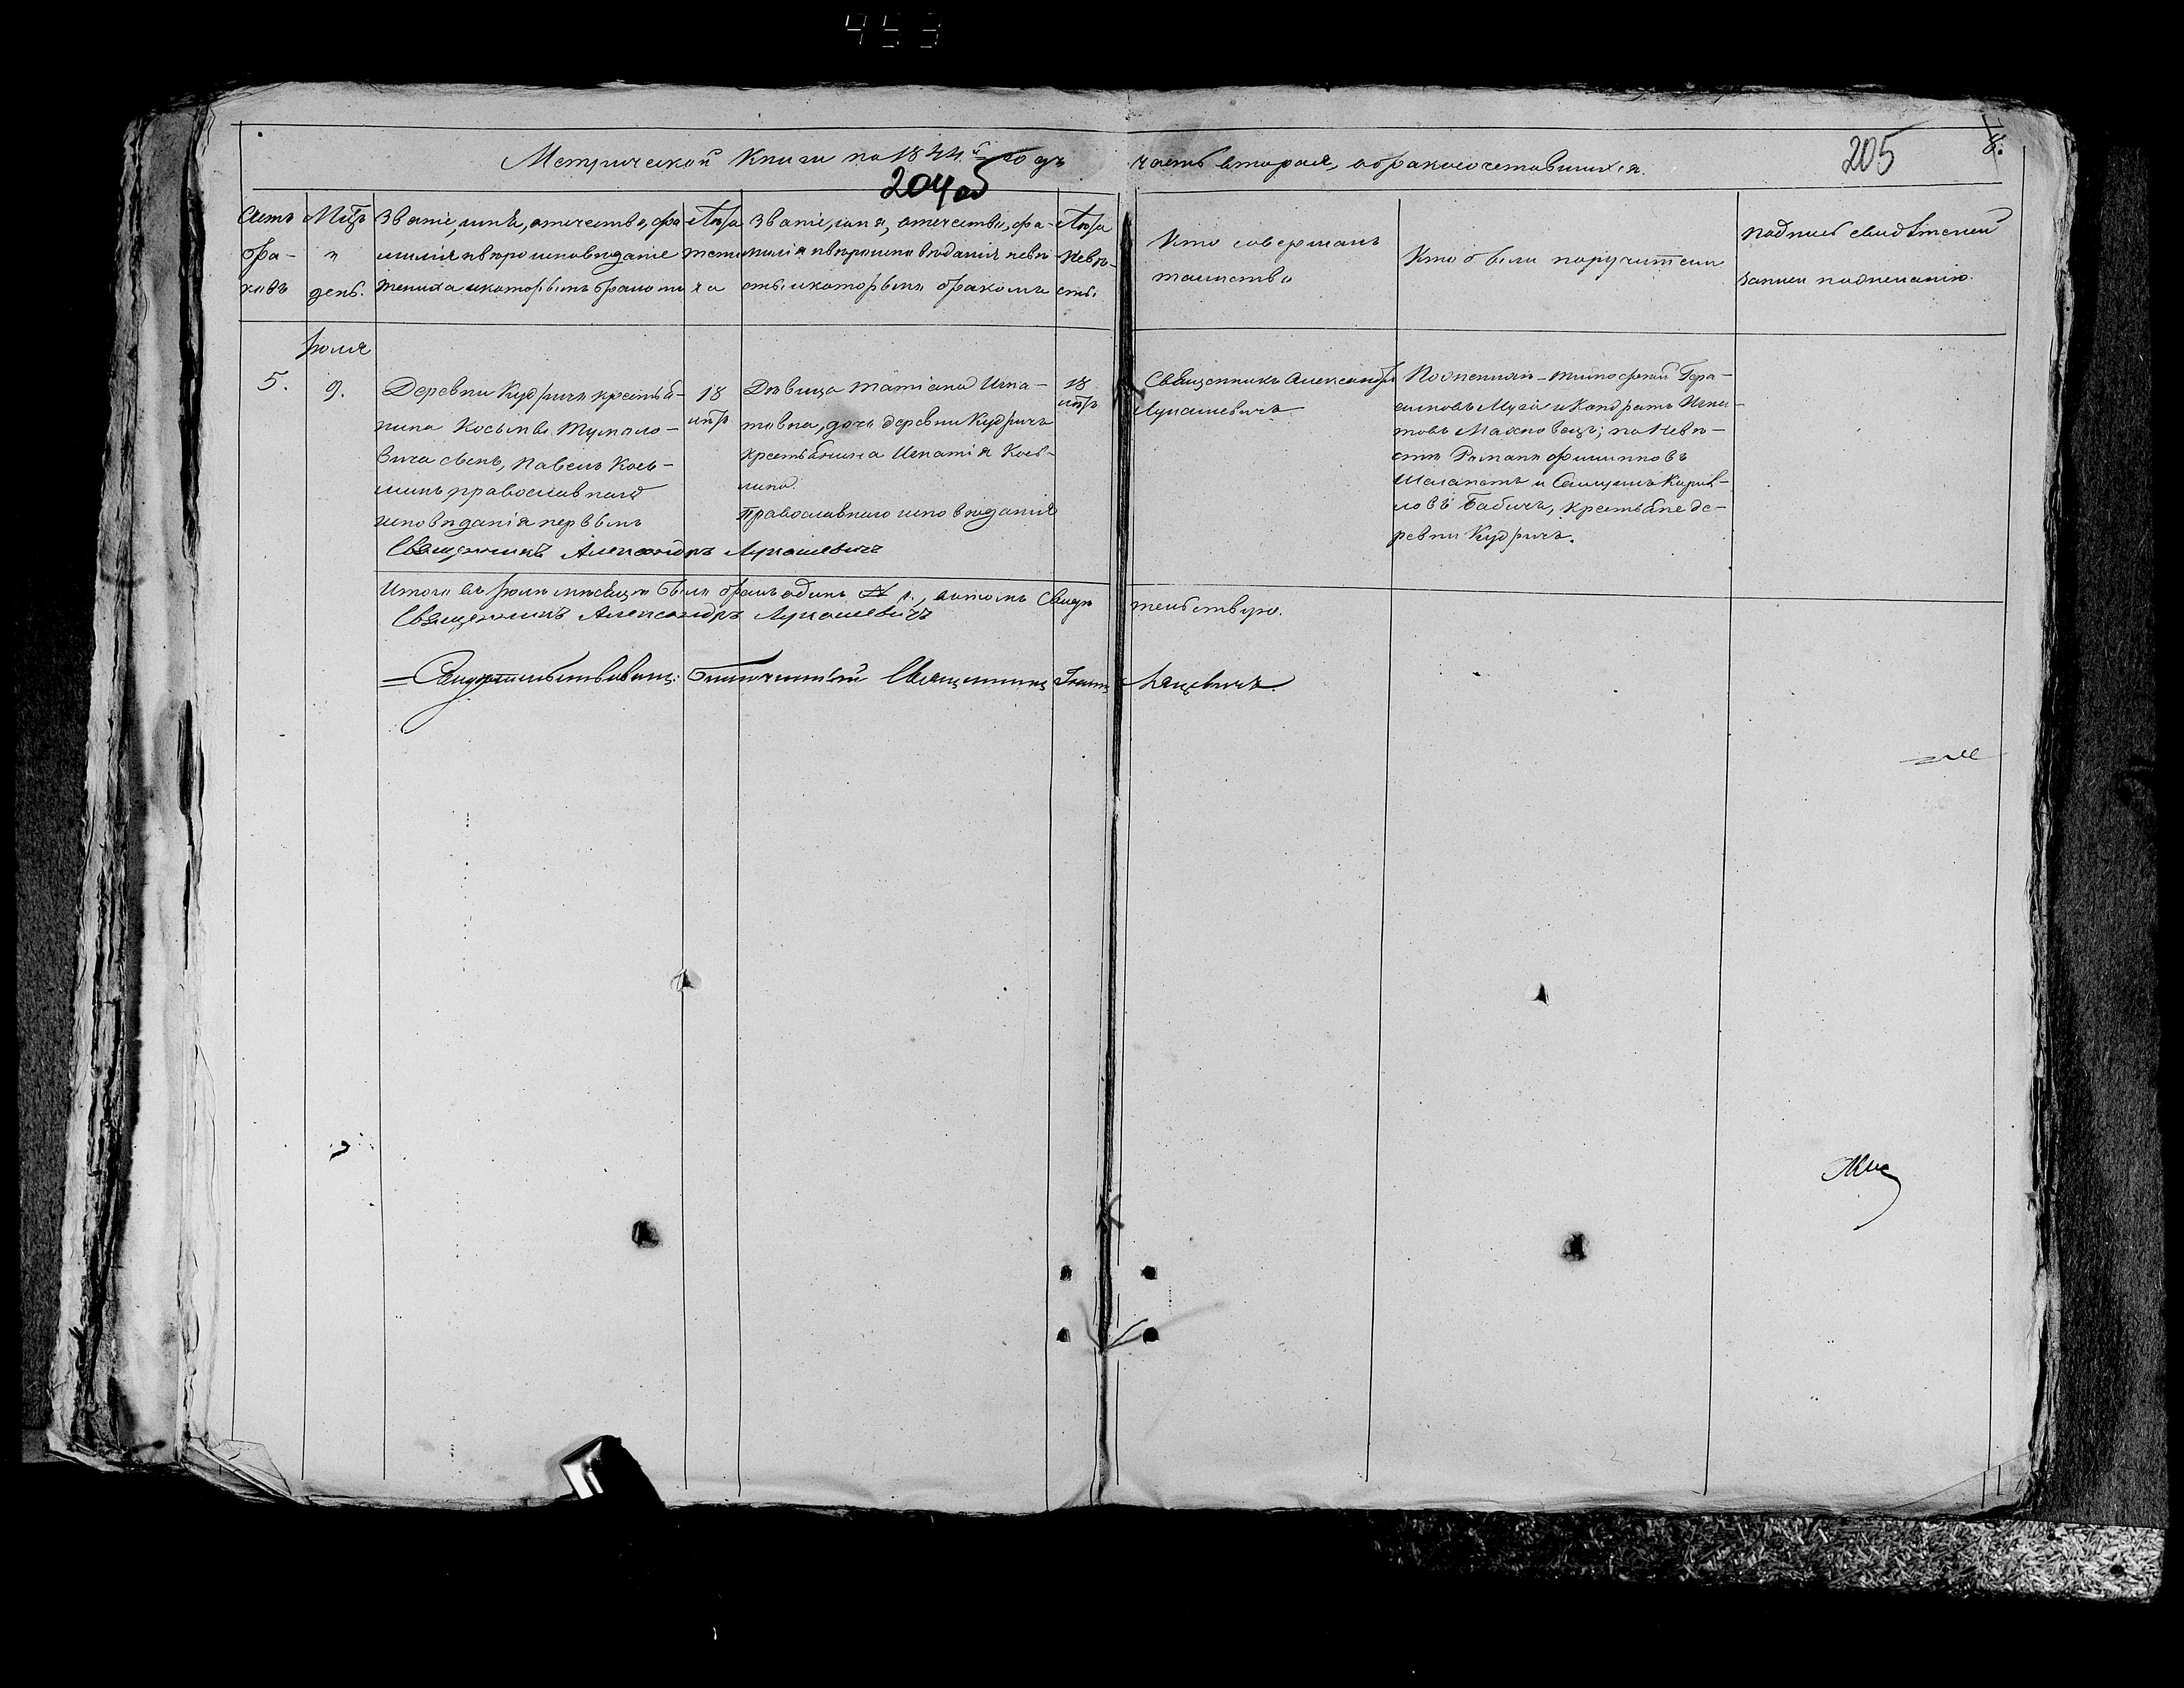 453
Метрической Книги на 1844й годъ часть вторая, о бракосочетавшихся.
204об
205
8.
Счетъ бра- ковъ
Мцъ и день.
Званіе, имя, отечество, фа-
милія и вероисповеданіе
жениха и которымъ бракомъ
Лета жени ха
Званіе, имя, отечество, фа-
милія и вероисповеданія неве
сты и которымъ бракомъ
Лета неве- сты
Кто совершалъ
таинство
Кто были поручители
Подпись свидетелей
записи по желанію.
Іюля
5.
9.
Деревни Кудричъ крестья-
нина Косьмы
вича сынъ, Павелъ Кось-
минъ православнаго
исповеданія первымъ
18
летъ
Девица Татіана Игна-
товна, дочь деревни Кудричъ
крестьянина Игнатія Кось-
мина.
Православнаго исповеданія
18
летъ
Священникъ Александръ
Лукашевичъ
По жениху - Тимофей Гера-
симовъ Мусій и Кондратъ Игна-
товъ Махновецъ; по Неве-
сте Романъ Филипповъ
Шелапетъ и Самуилъ Кирил-
ловъ Бабичъ, крестьяне де-
ревни Кудричъ.
Священникъ Александръ Лукашевичъ
Итого въ Іюле месяце былъ бракъ одинъ въ томъ свиде тельствую.
Священникъ Александръ Лукашевичъ
Свидетельствовалъ: Священникъ